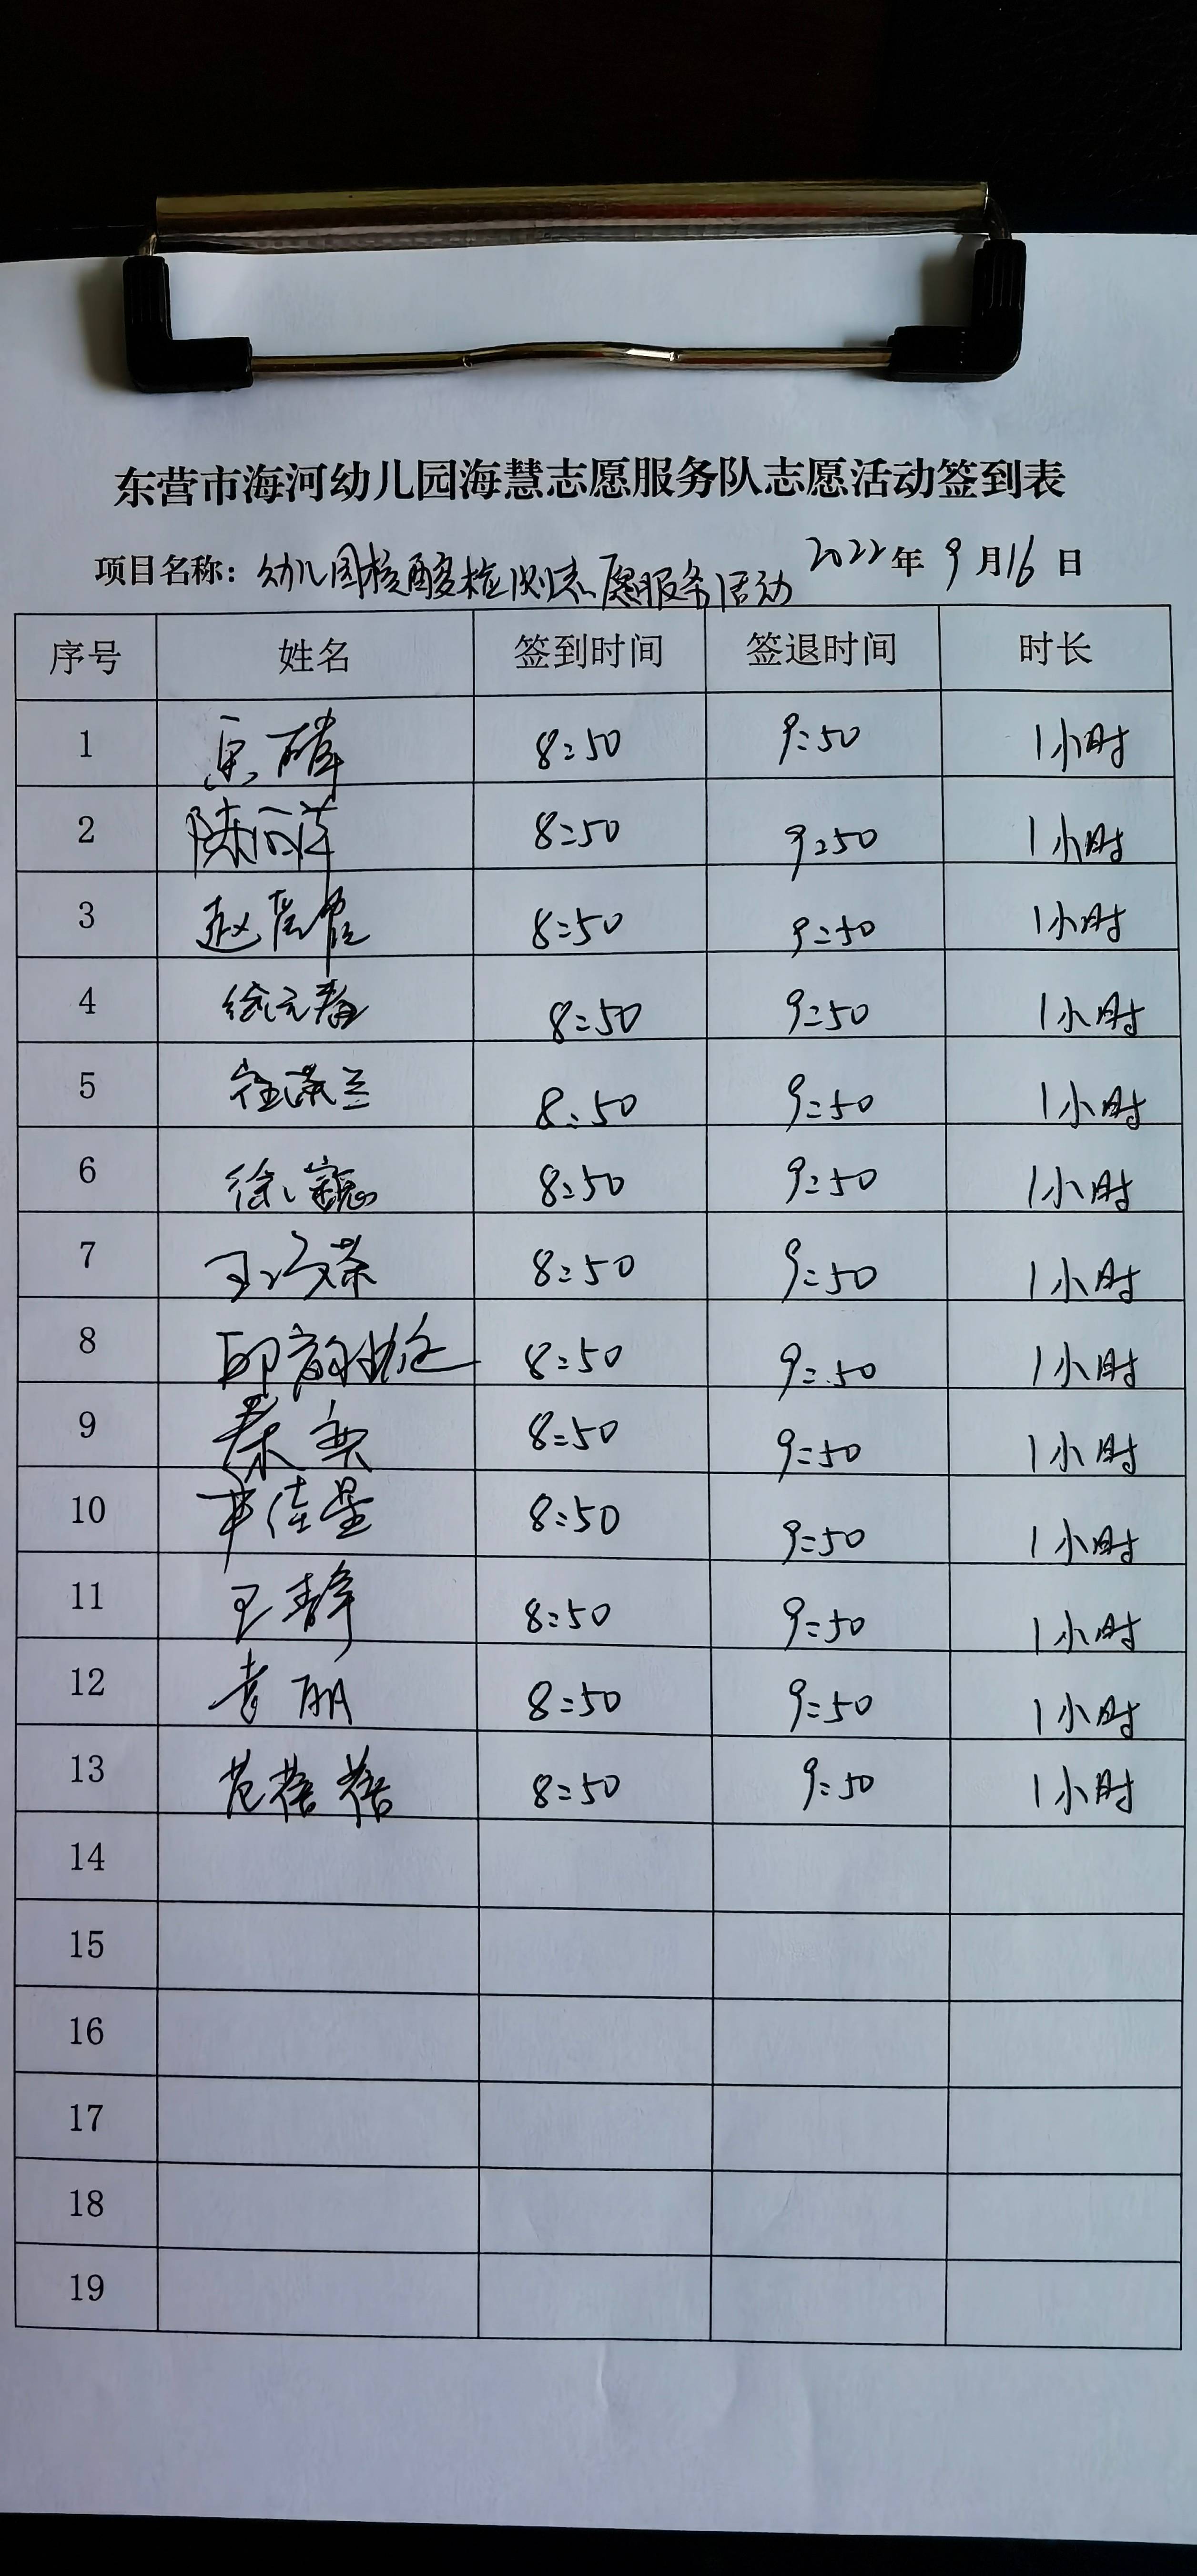 东营市海河幼儿园海慧志愿服务队志愿活动签到表
项目名称：幼儿园核酸检测志愿服务活动 2022年9月16日
序号 姓名 签到时间 签退时间 时长
1 8:50 9:50 1小时
2 8:50 9:50 1小时
3 赵 8:50 9:50 1小时
4 徐元春 8:50 9:50 1小时
5 8:50 9:50 1小时
6 徐 8:50 9:50 1小时
7 王 8:50 9:50 1小时
8 8:50 9:50 1小时
9 秦 8:50 9:50 1小时
10 佳星 8:50 9:50 1小时
11 王静 8:50 9:50 1小时
12 李丽 8:50 9:50 1小时
13 范蓓蓓 8:50 9:50 1小时
14
15
16
17
18
19